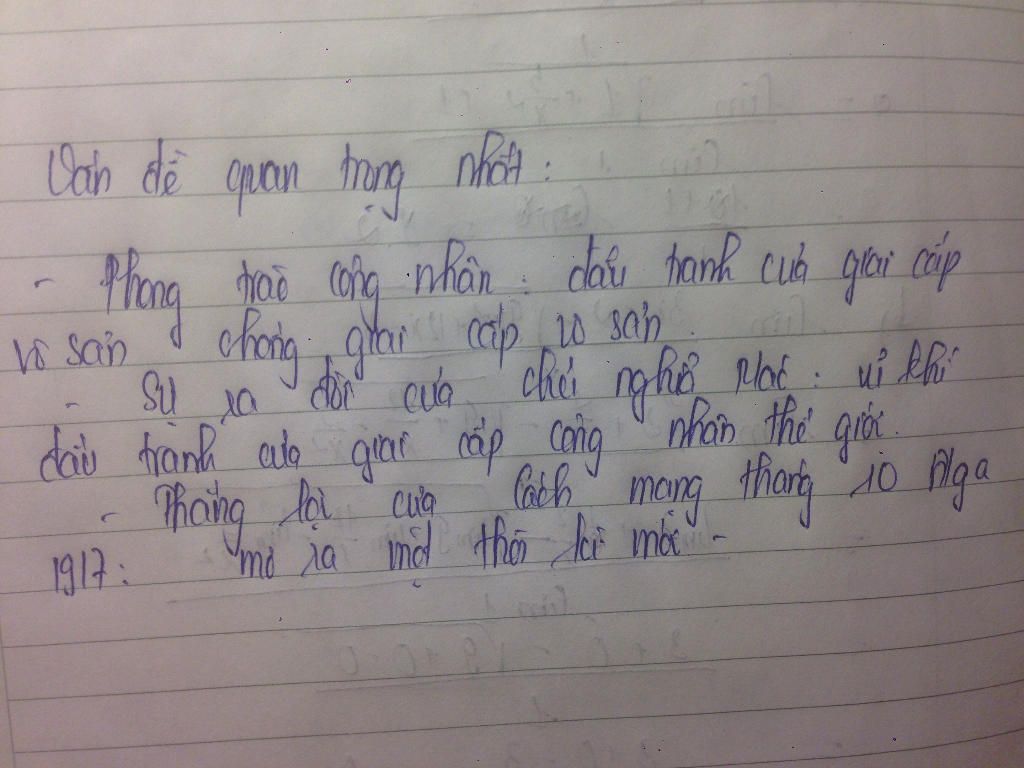 Vấn đề quan trọng nhất:
- Phong trào công nhân: đấu tranh của giai cấp
vô sản chống giai cấp vô sản.
- Sự ra đời của chủ nghĩa Mác: vũ khí
đấu tranh của giai cấp công nhân thế giới.
- Thắng lợi của Cách mạng tháng 10 Nga
1917: mở ra một thời kì mới -